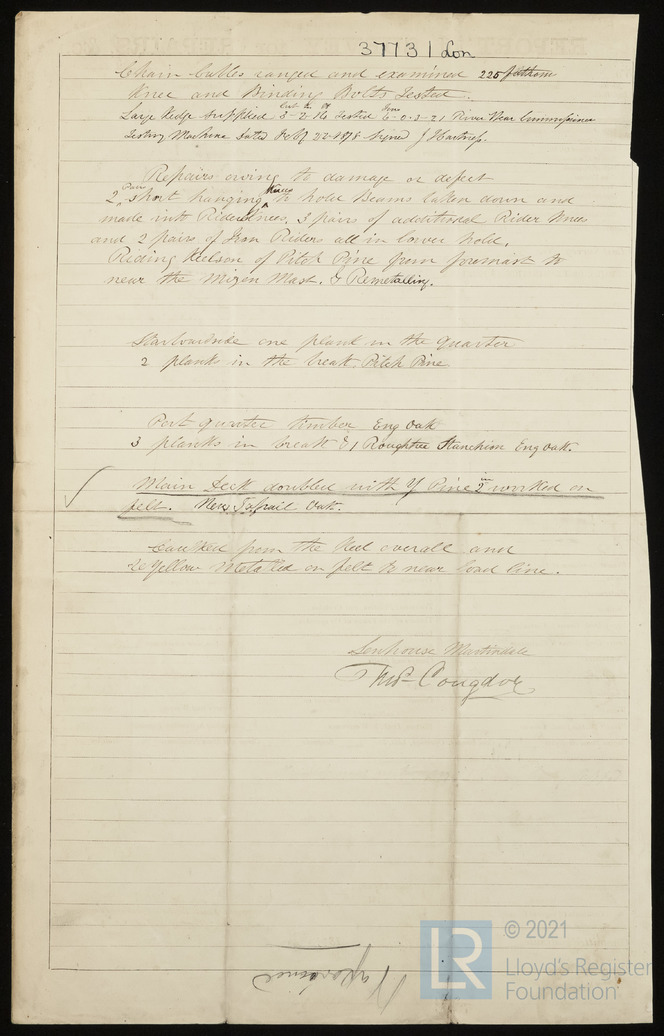 37731 Lon
Chain Cables ranged and examined 225 fathom
Knee and Binding Bolts Tested.
Large Kedge supplied 3-2-16 Tested 6-0-3-21 River Wear Commissioner
Testing Machine dated Feby 22-1878 Signed J Hartness.
Repairs owing to damage or defect
2 Pairs short hanging Knees to hold Beams taken down and
made into Rider Knees. 3 pairs of additional Rider Knees
and 2 pairs of Iron Riders all in lower hold.
Riding Keelson of Pitch Pine from foremast to
near the Mizen Mast. & Remetalling.
Starboardside one plank in the quarter
2 planks in the break Pitch Pine
Port quarter timber Eng Oak
3 planks in break & 1 Roughtree Stanchion Eng Oak.
Main Deck doubled with Y Pine 2 in worked on
felt. New Tafrail Oak.
Caulked from the Keel overall and
Yellow Metalled on felt to near load line.
Senhouse Martindale
Thos Congdon
LR
© 2021
Lloyd's Register
Foundation